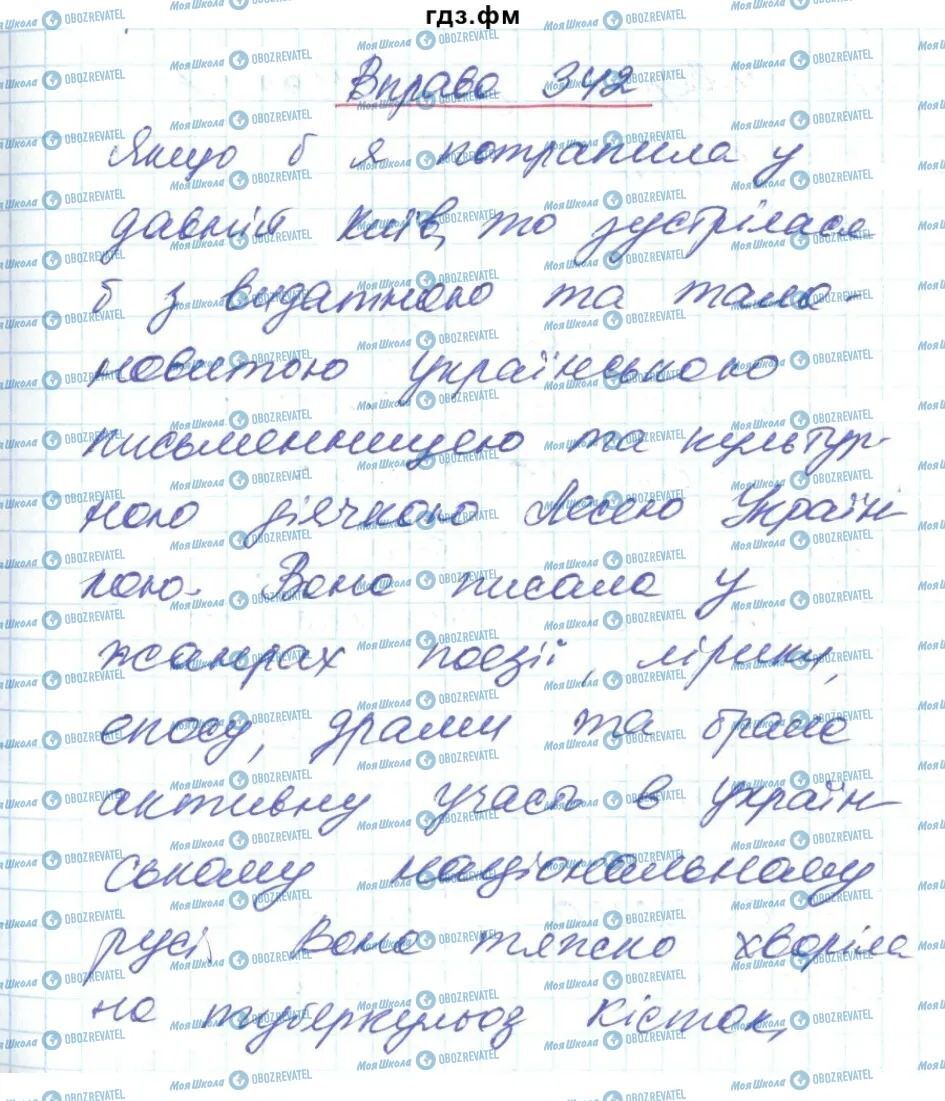 гдз.фм
Вправа 342
Якщо б я потрапила у
давній Київ, то зустрілася
б з видатною та тала-
новитою українською
письменницею та культур-
ною діячкою Лесею Україн
кою. Вона писала у
жанрах поезії, лірики,
епосу, драми та брала
активну участь в україн
ському національному
русі. Вона тяжко хворіла
на туберкульоз кісток,
МояШкола OBOZREVATEL